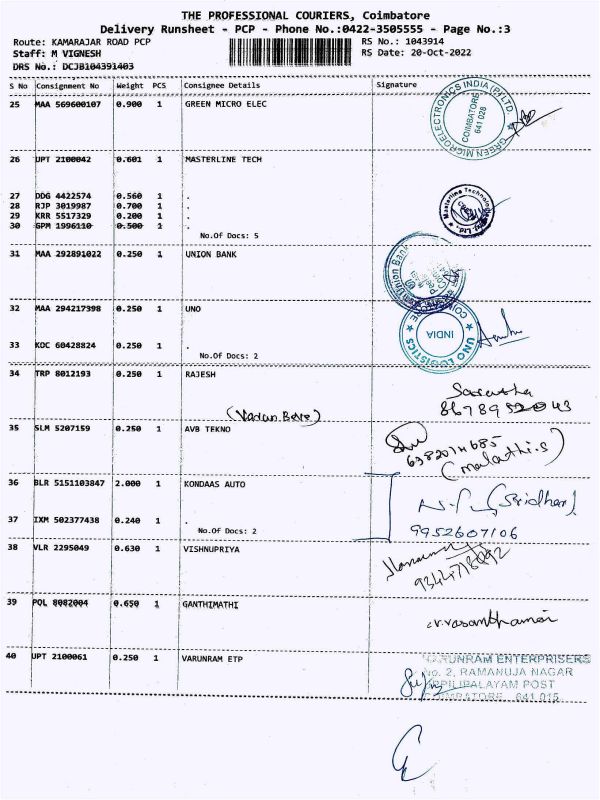 THE PROFESSIONAL COURIERS, Coimbatore
Delivery Runsheet - PCP - Phone No.:0422-3505555 - Page No.:3
Route: KAMARAJAR ROAD PCP
RS No.: 1043914
Staff: M VIGNESH
RS Date: 20-Oct-2022
DRS No.: DCJB104391403
S No Consignment No Weight PCS Consignee Details Signature
25 MAA 569600107 0.900 1 GREEN MICRO ELEC
GREEN MICROELECTRONICS INDIA (P) LTD.
COIMBATORE
641 028
26 UPT 2100042 0.601 1 MASTERLINE TECH
27 DDG 4422574 0.560 1 .
28 RJP 3019987 0.700 1 .
29 KRR 5517329 0.200 1 .
30 GPM 1996110 0.500 1 .
No.Of Docs: 5
Masterline Technologies
31 MAA 292891022 0.250 1 UNION BANK
Union Bank
32 MAA 294217398 0.250 1 UNO
UNO LOGISTICS
INDIA
33 KOC 60428824 0.250 1 .
No.Of Docs: 2
34 TRP 8012193 0.250 1 RAJESH
35 SLM 5207159 0.250 1 AVB TEKNO
6382014685
(Malathi.S)
36 BLR 5151103847 2.000 1 KONDAAS AUTO
(Sridhar)
37 IXM 502377438 0.240 1 .
No.Of Docs: 2
9952607106
38 VLR 2295049 0.630 1 VISHNUPRIYA
39 POL 8082004 0.650 1 GANTHIMATHI
v.vasanthamani
40 UPT 2100061 0.250 1 VARUNRAM ETP
VARUNRAM ENTERPRISERS
No. 2, RAMANUJA NAGAR
UPPILIPALAYAM POST
COIMBATORE 641 015